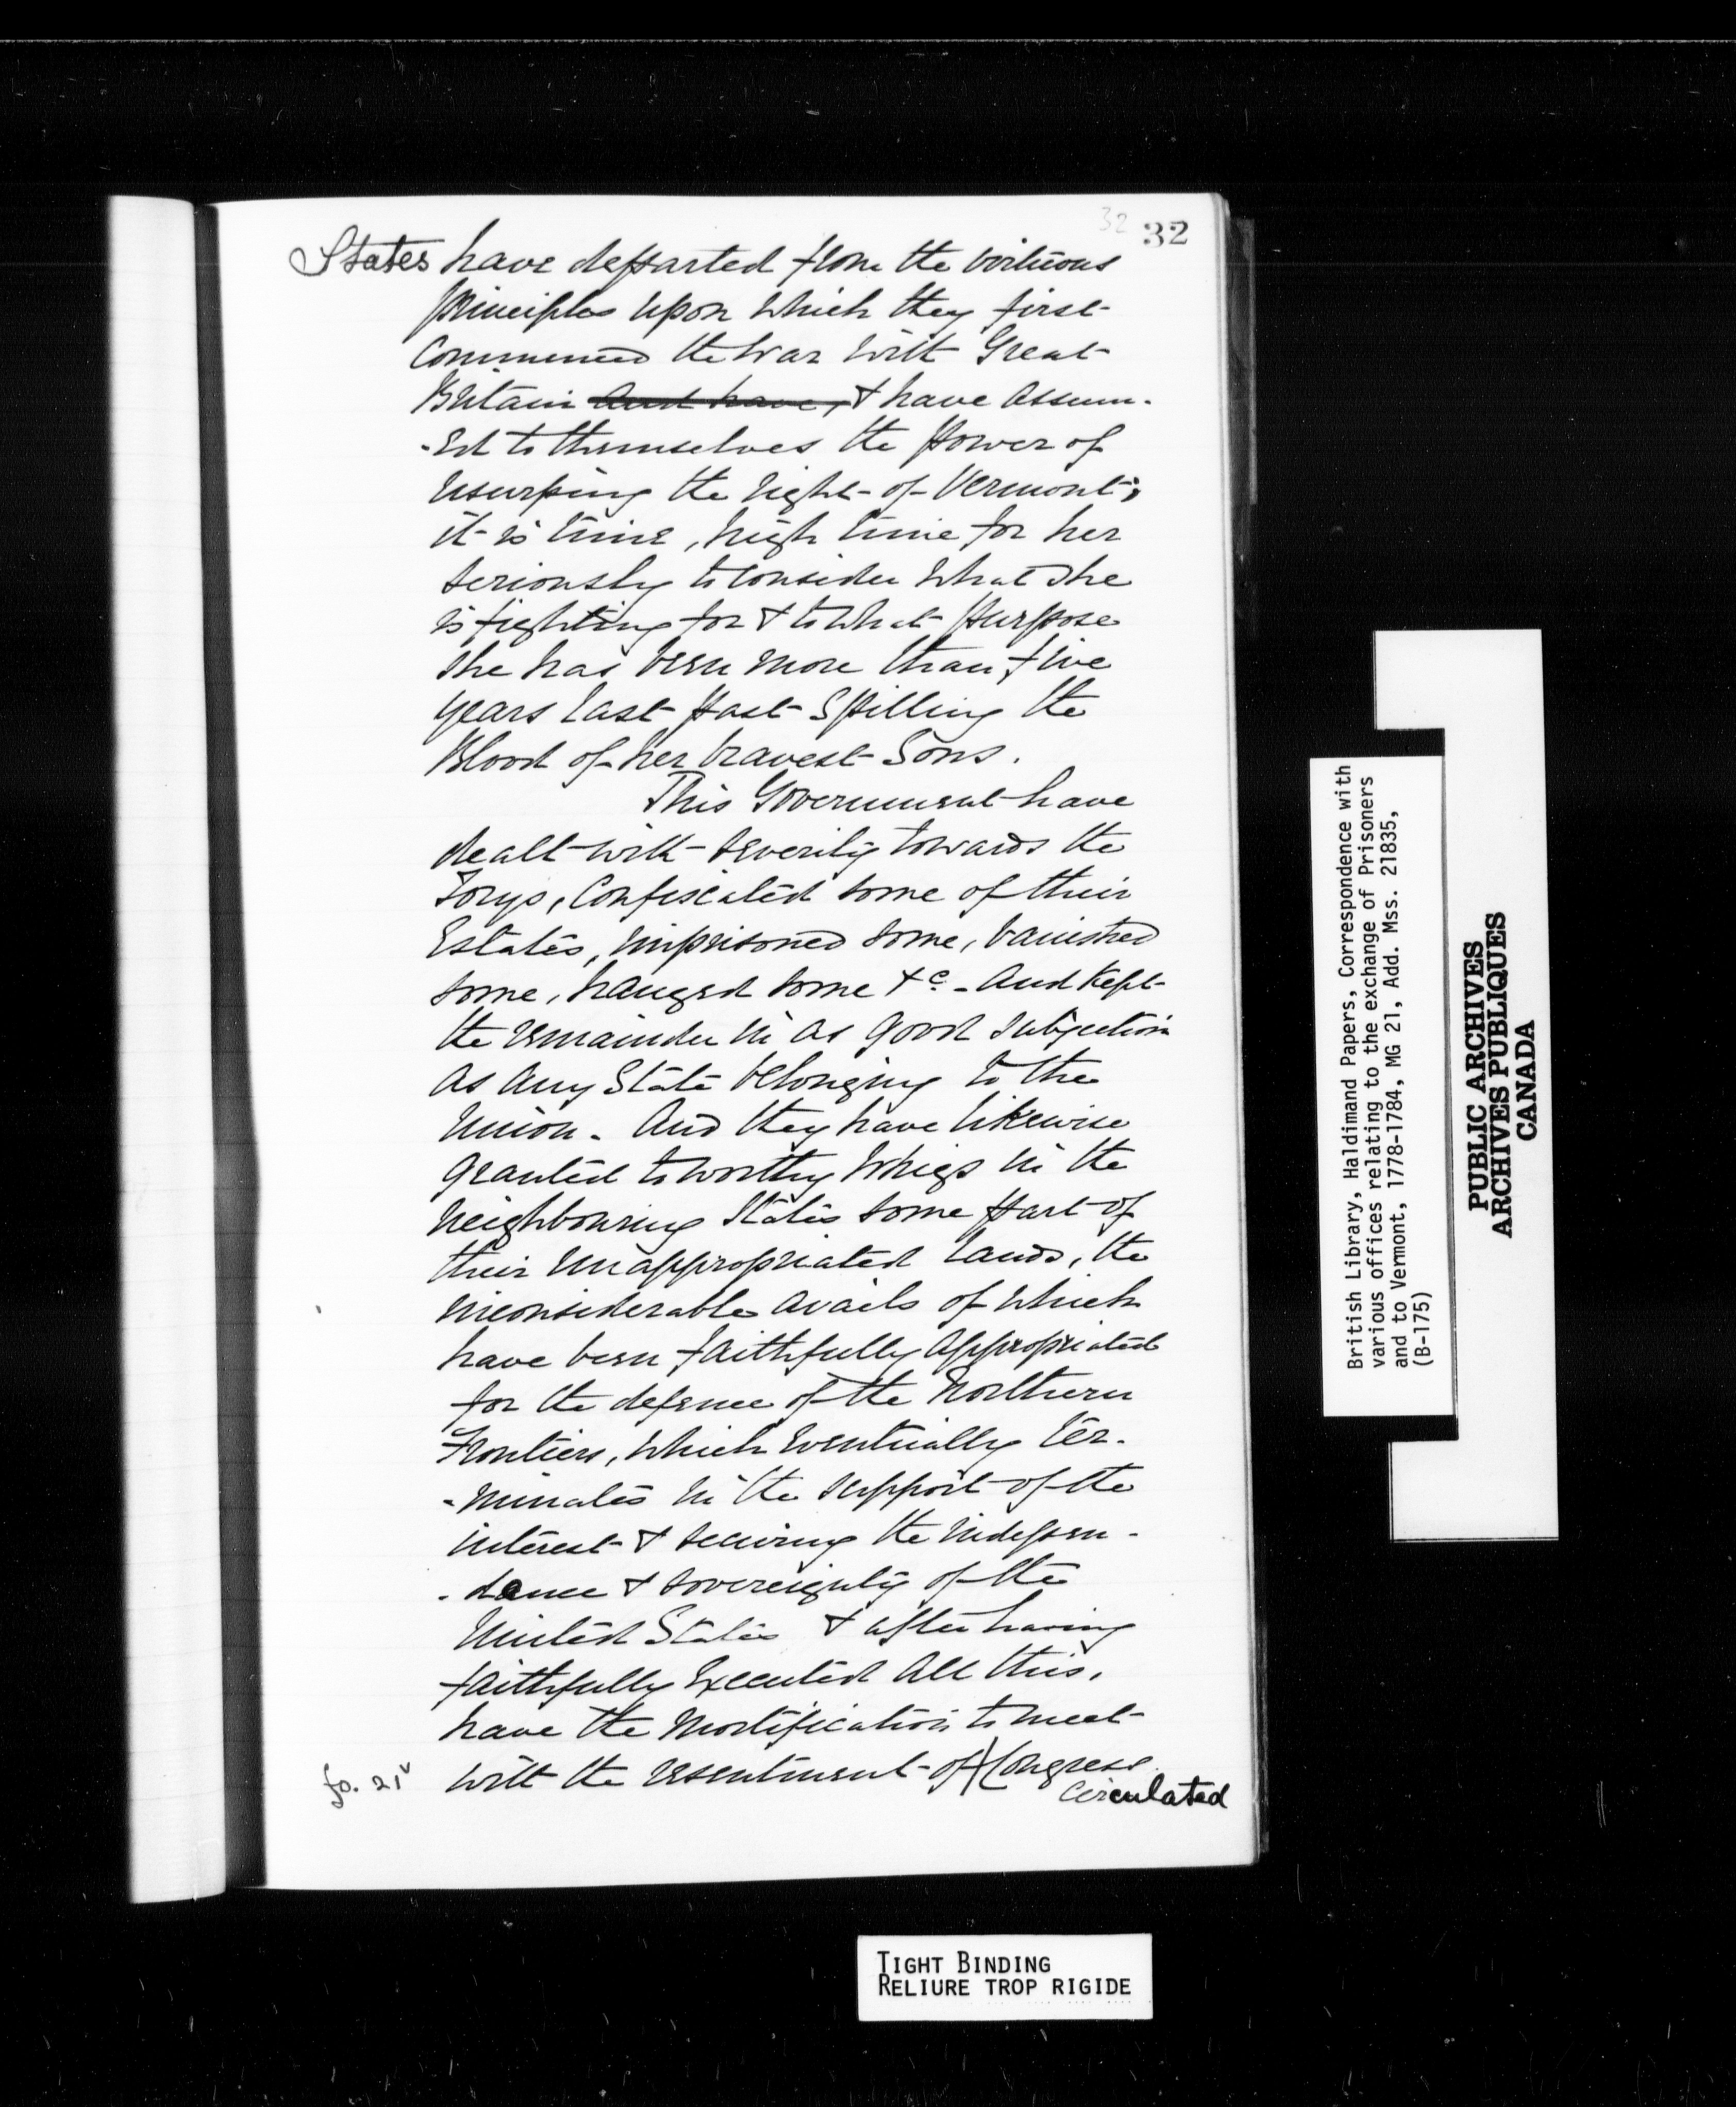 32 32
States have departed from the virtuous
principles upon which they first
Commenced the War with Great
Britain and have, & have assum-
-ed to themselves the power of
usurping the right of Vermont;
it is time, high time for her
seriously to consider what she
is fighting for & to what purpose
she has been more than five
years last past Spilling the
Blood of her bravest Sons.
This Government have
dealt with severity towards the
Torys, Confiscated some of their
Estates, imprisoned some, banished
some, hanged some &c. And kept
the remainder in as good subjection
as any State belonging to the
Union. And they have likewise
granted to worthy Whigs in the
neighbouring States some part of
their unappropriated lands, the
inconsiderable avails of which
have been faithfully appropriated
for the defence of the Northern
Frontiers, which eventually ter-
-minates in the support of the
interest & securing the indepen-
-dance & sovereignty of the
United States & after having
faithfully executed all this,
have the mortification to meet
fo. 21v with the resentment of Congress
Circulated
British Library, Haldimand Papers, Correspondence with
various offices relating to the exchange of Prisoners
and to Vermont, 1778-1784, MG 21, Add. Mss. 21835,
(B-175)
PUBLIC ARCHIVES
ARCHIVES PUBLIQUES
CANADA
TIGHT BINDING
RELIURE TROP RIGIDE